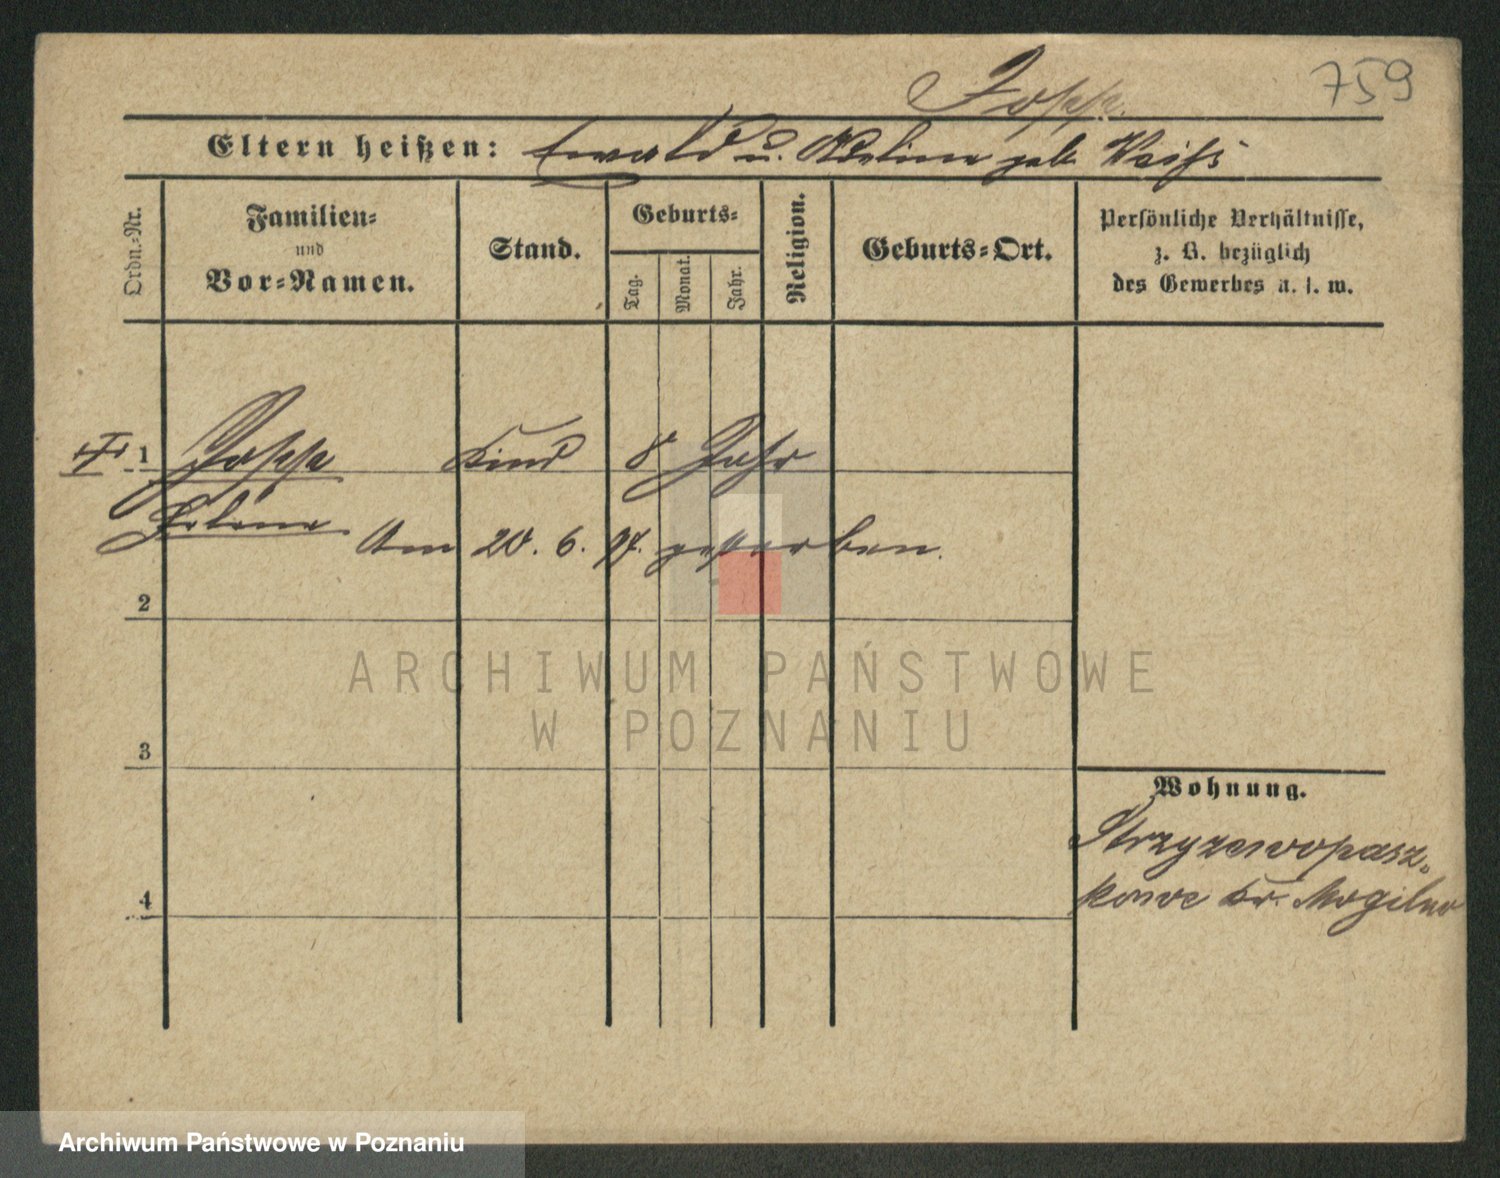 759
Jopp.
Eltern heißen: Ewald u. Adeline geb. Weiß
Ordn.-Nr.
Familien-
und
Vor-Namen.
Stand.
Geburts-
Tag.
Monat.
Jahr.
Religion.
Geburts-Ort.
Persönliche Verhältnisse,
z. B. bezüglich
des Gewerbes u. s. w.
1 Jopp Kind 8 Jahr
Helene
Am 20. 6. 97. gestorben.
2
3
4
Wohnung.
Strzyzewopasz-
kowe Kr. Mogilno
ARCHIWUM PAŃSTWOWE
W POZNANIU
Archiwum Państwowe w Poznaniu